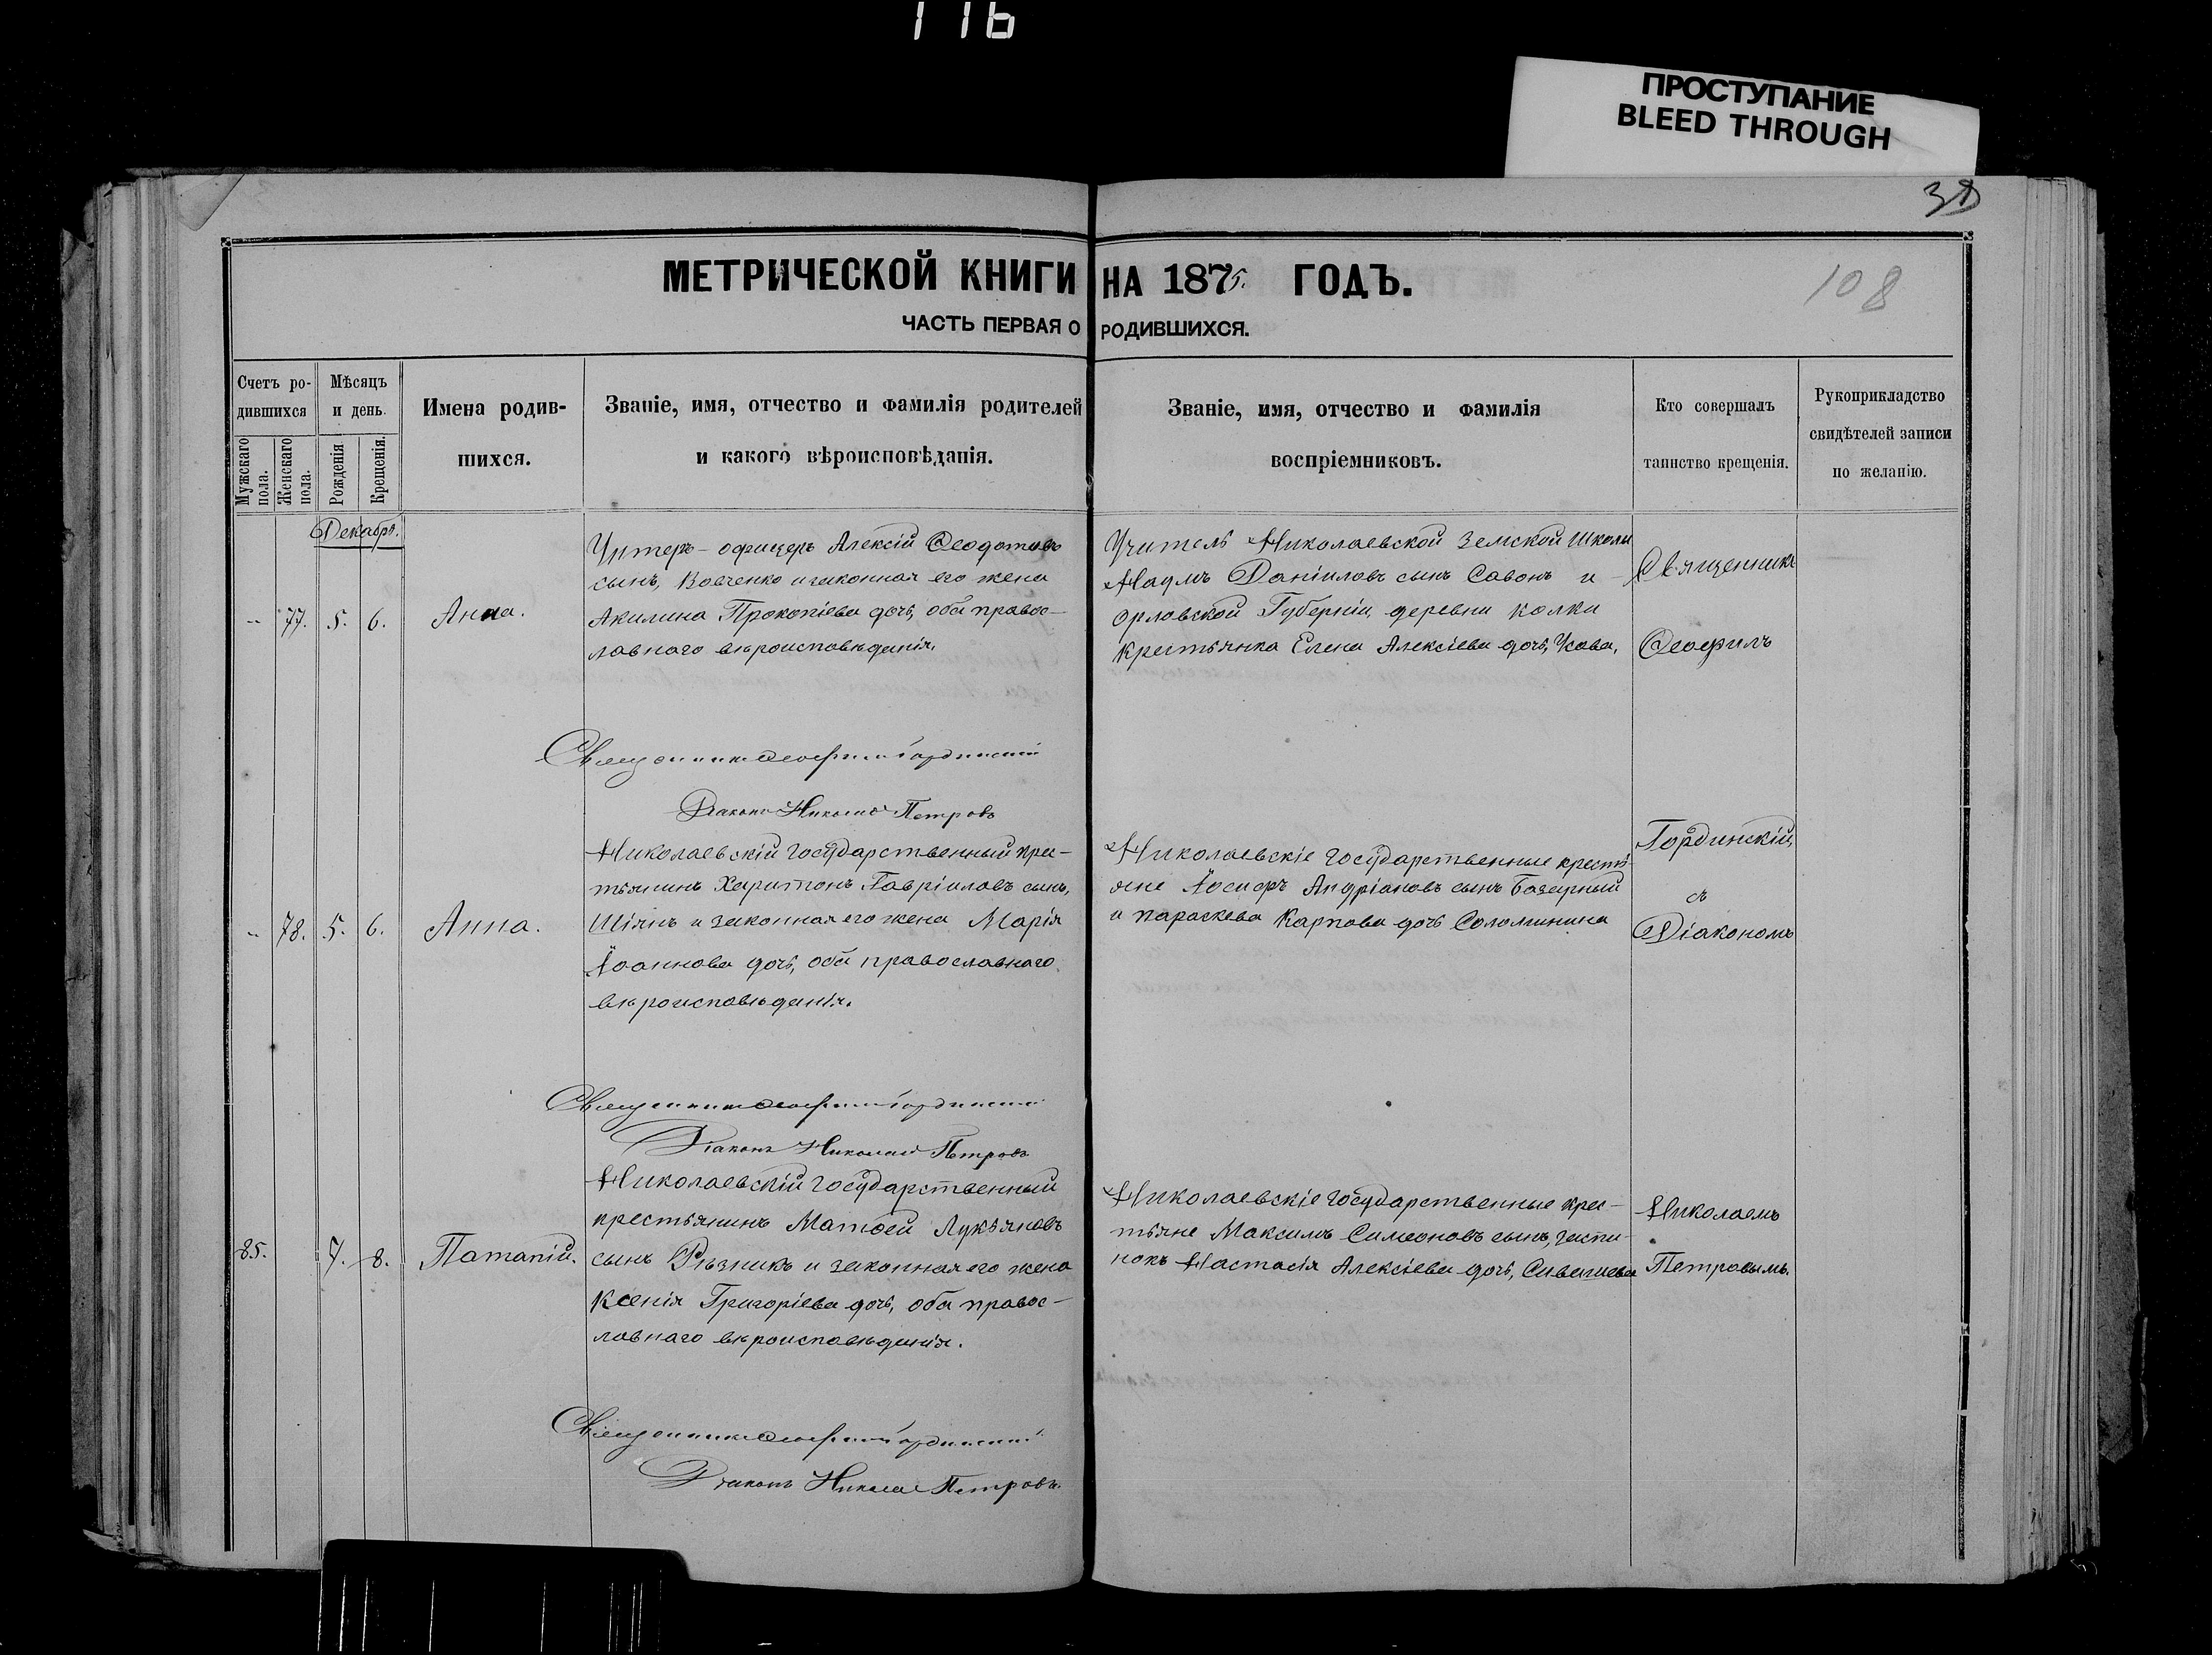 116
ПРОСТУПАНИЕ
BLEED THROUGH
МЕТРИЧЕСКОЙ КНИГИ НА 1875. ГОДЪ.
108
ЧАСТЬ ПЕРВАЯ О РОДИВШИХСЯ.
Счетъ ро-
дившихся
Мужскаго пола.
Женскаго пола.
Мѣсяцъ
и день.
Рожденія
Крещенія.
Имена родив-
шихся.
Званіе, имя, отчество и фамилія родителей
и какого вѣроисповѣданія.
Званіе, имя, отчество и фамилія
воспріемниковъ.
Кто совершалъ
таинство крещенія.
Рукоприкладство
свидѣтелей записи
по желанію.
Декабрь.
77. 5. 6. Анна.
Унтеръ-офицеръ Алексій Ѳеодотовъ
сынъ, Вовченко и законная его жена
Акилина Прокопіева дочь, оба правос-
лавнаго вѣроисповѣданія.
Учитель Николаевской Земской Школы
Наумъ Даніиловъ сынъ Савонъ и
Орловской Губерніи, деревни Колки
крестьянка Елена Алексіева дочь, Усова,
Священникъ
Ѳеофилъ
Священникъ Ѳеофилъ Гординскій
Діаконъ Николай Петровъ
78. 5. 6. Анна.
Николаевскій государственный крес-
тьянинъ Харитонъ Гавріиловъ сынъ,
Шіянъ и законная его жена Марія
Іоаннова дочь, оба православнаго
вѣроисповѣданія.
Николаевскіе государственные кресть-
яне Іосифъ Андріановъ сынъ Базарный
и Параскева Карпова дочь Соломинина
Гординскій,
съ
Діакономъ
Священникъ Ѳеофилъ Гординскій
Діаконъ Николай Петровъ
85. 7. 8. Патапій.
Николаевскій государственный
крестьянинъ Матѳей Лукьяновъ
сынъ Рѣзникъ и законная его жена
Ксенія Григоріева дочь, оба правос-
лавнаго вѣроисповѣданія.
Николаевскіе государственные крес-
тьяне Максимъ Симеоновъ сынъ,
Настасія Алексіева дочь,
Николаемъ
Петровымъ.
Священникъ Ѳеофилъ Гординскій
Діаконъ Николай Петровъ.